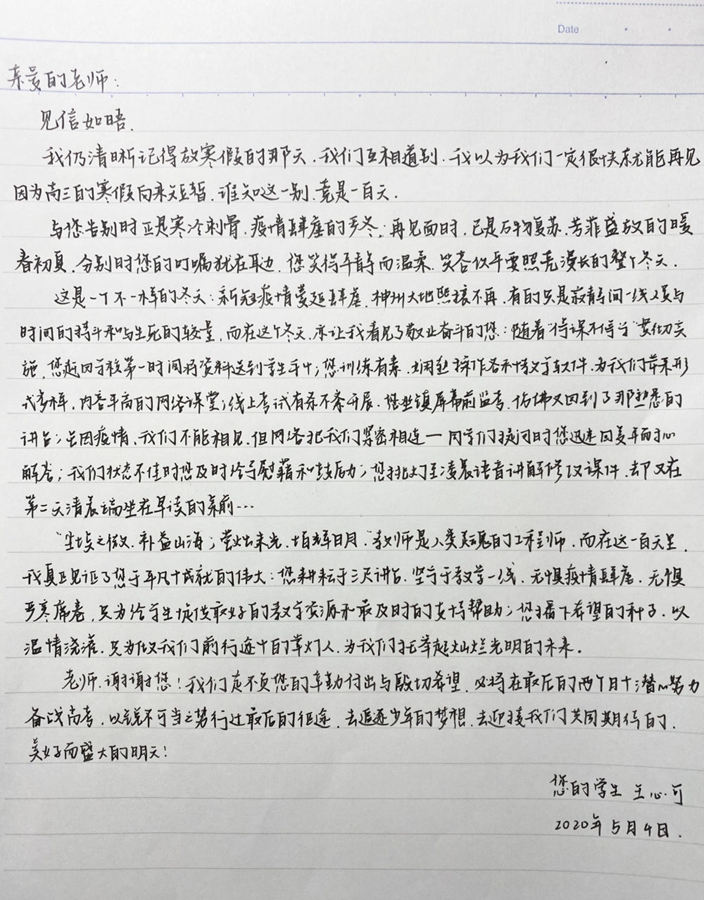 Date
亲爱的老师：
见信如晤.
我仍清晰记得放寒假的那天,我们互相道别,我以为我们一定很快就能再见
因为高三的寒假向来短暂,谁知这一别,竟是一百天.
与您告别时正是寒冷刺骨,疫情肆虐的严冬;再见面时,已是万物复苏,芳菲盛放的暖
春初夏,分别时您的叮嘱犹在耳边,您笑得平静而温柔,笑容似乎要照亮漫长的整个冬天.
这是一个不一样的冬天：新冠疫情蔓延肆虐,神州大地熙攘不再,有的只是寂静间一线人员与
时间的搏斗和与生死的较量,而在这个冬天,亦让我看见了敬业奋斗的您：随着"停课不停学"贯彻实
施,您返回学校第一时间将资料送到学生手中;您训练有素,娴熟操作各种教学软件,为我们带来形
式多样,内容丰富的网络课堂;线上考试有条不紊开展,您坐镇屏幕前监考,仿佛又回到了那熟悉的
讲台;虽因疫情,我们不能相见,但网络把我们紧密相连——同学们提问时您迅速回复耐心
解答;我们状态不佳时您及时给予慰藉和鼓励;您挑灯至凌晨语音讲解修改课件,却又在
第二天清晨端坐在早读的桌前…
"尘埃之微,补益山海;萤火之光,增辉日月."教师是人类灵魂的工程师,而在这一百天里,
我真正见证了您于平凡中成就的伟大：您耕耘于三尺讲台,坚守于教学一线,无惧疫情肆虐,无惧
严寒席卷,只为给学生提供最好的教学资源和最及时的支持帮助;您播下希望的种子,以
温情浇灌,只为做我们前行途中的掌灯人,为我们托举起灿烂光明的未来.
老师,谢谢您!我们定不负您的辛勤付出与殷切希望,必将在最后的两个月中潜心努力
备战高考,以锐不可当之势行过最后的征途,去追逐少年的梦想,去迎接我们共同期待的,
美好而盛大的明天!
您的学生 王心可
2020年5月4日.